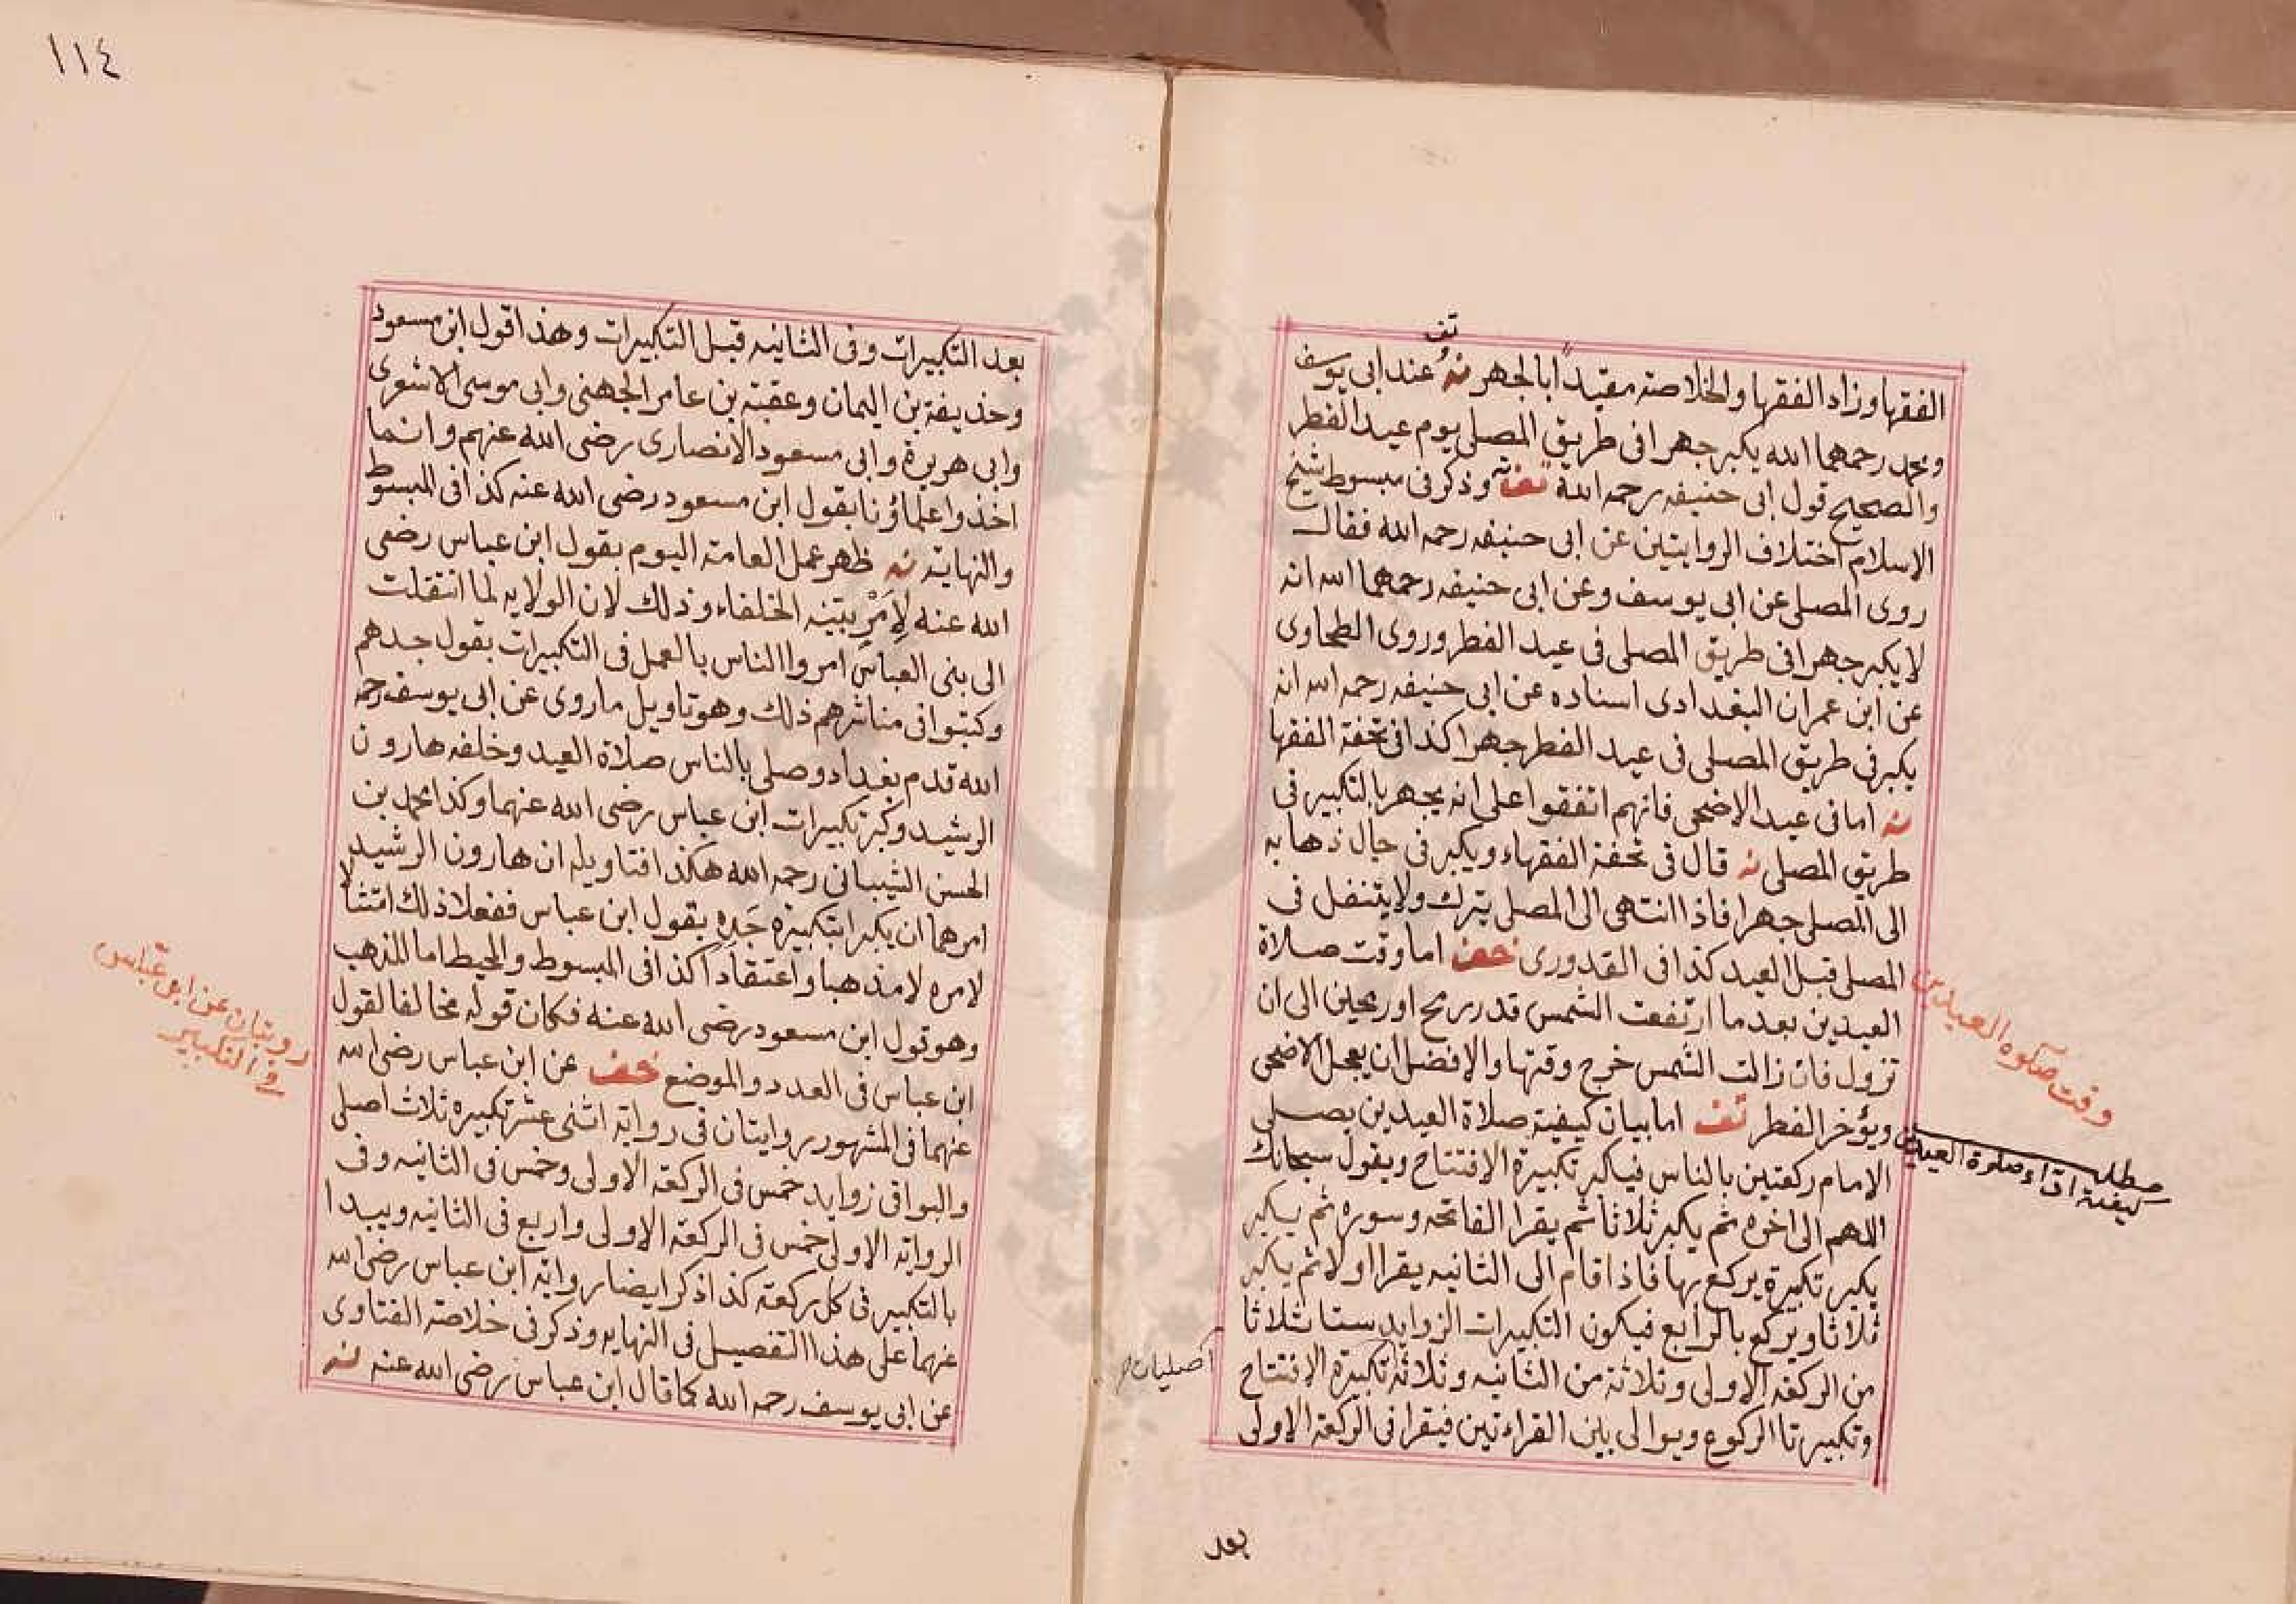 الفقها وزاد الفقها والخلاصة مقيدا بالجهر نه عند ابي يوسف
تف
ومحمد رحمهما الله يكبر جهرا فى طريق المصلى يوم عيد الفطر
والصحيح قول ابى حنيفه رحمه الله تف وذكر فى مبسوط شيخ
الاسلام اختلاف الروايتين عن ابى حنيفه رحمه الله فقال
روى المصلى عن ابى يوسف وعن ابى حنيفه رحمهما الله انه
لا يكبر جهرا فى طريق المصلى فى عيد الفطر وروى الطحاوى
عن ابن عمران البغدادى اسناده عن ابى حنيفه رحمه الله انه
يكبر فى طريق المصلى فى عيد الفطر جهرا كذا فى تحفة الفقها
نه اما فى عيد الاضحى فانهم اتفقوا على انه يجهر بالتكبير فى
طريق المصلى نه قال فى تحفة الفقهاء ويكبر فى حال ذهابه
الى المصلى جهرا فاذا انتهى الى المصلى يترك ولا يتنفل فى
المصلى قبل العيد كذا فى القدورى خف اما وقت صلاة
العيدين بعد ما ارتفعت الشمس قدر رمح او رمحين الى ان
تزول فان زالت الشمس خرج وقتها والافضل ان يعجل الاضحى
ويؤخر الفطر تف اما بيان كيفية صلاة العيدين يصلى
الامام ركعتين بالناس فيكبر تكبيرة الافتتاح ويقول سبحانك
اللهم الى اخره ثم يكبر ثلاثا ثم يقرا الفاتحه وسوره ثم يكبر
يكبر تكبيرة يركع بها فاذا قام الى الثانيه يقرا اولا ثم يكبر
ثلاثا ويركع بالرابع فيكون التكبيرات الزوايد ستا ثلاثا
من الركعة الاولى وثلاثة من الثانيه وثلاثة تكبيرة الافتتاح
وتكبيرتا الركوع ويوالى بين القراءتين فيقرا فى الركعة الاولى
وقت صلوه العيدين
مطلب
كيفية اداء صلوة العيدين
اصليات
بعد
١١٤
بعد التكبيرات وفى الثانيه قبل التكبيرات وهذا قول ابن مسعود
وحذيفة بن اليمان وعقبة بن عامر الجهنى وابى موسى الاشعرى
وابى هريرة وابى مسعود الانصارى رضى الله عنهم وانما
اخذوا علماؤنا بقول ابن مسعود رضى الله عنه كذا فى المبسوط
والنهاية نه ظهر عمل العامة اليوم بقول ابن عباس رضى
الله عنه لامر بتيه الخلفاء وذلك لان الولايه لما انتقلت
الى بنى العباس امروا الناس بالعمل فى التكبيرات بقول جدهم
وكتبوا فى مناشرهم ذلك وهو تاويل ما روى عن ابى يوسف رحمه
الله قدم بغداد وصلى بالناس صلاة العيد وخلفه هارون
الرشيد وكبر تكبيرات ابن عباس رضى الله عنهما وكذا محمد بن
الحسن الشيبانى رحمه الله هكذا فتاويله ان هارون الرشيد
امرهما ان يكبرا بتكبيرة جده بقول ابن عباس ففعلا ذلك امتثالا
لامره لا مذهبا واعتقادا كذا فى المبسوط والمحيط اما المذهب
وهو قول ابن مسعود رضى الله عنه فكان قوله مخالفا لقول
ابن عباس فى العدد والموضع خف عن ابن عباس رضى الله
عنهما فى المشهور روايتان فى رواية اثنى عشر تكبيره ثلاث اصلى
والبواقى زوايد خمس فى الركعة الاولى وخمس فى الثانيه وفى
الرواية الاولى خمس فى الركعة الاولى واربع فى الثانيه ويبدا
بالتكبير فى كل ركعة كذا ذكر ايضا رواية ابن عباس رضى الله
عنهما على هذا التفصيل فى النهايه وذكر فى خلاصة الفتاوى
عن ابى يوسف رحمه الله كما قال ابن عباس رضى الله عنه نه
رويتان عن ابن عباس
فى التكبير